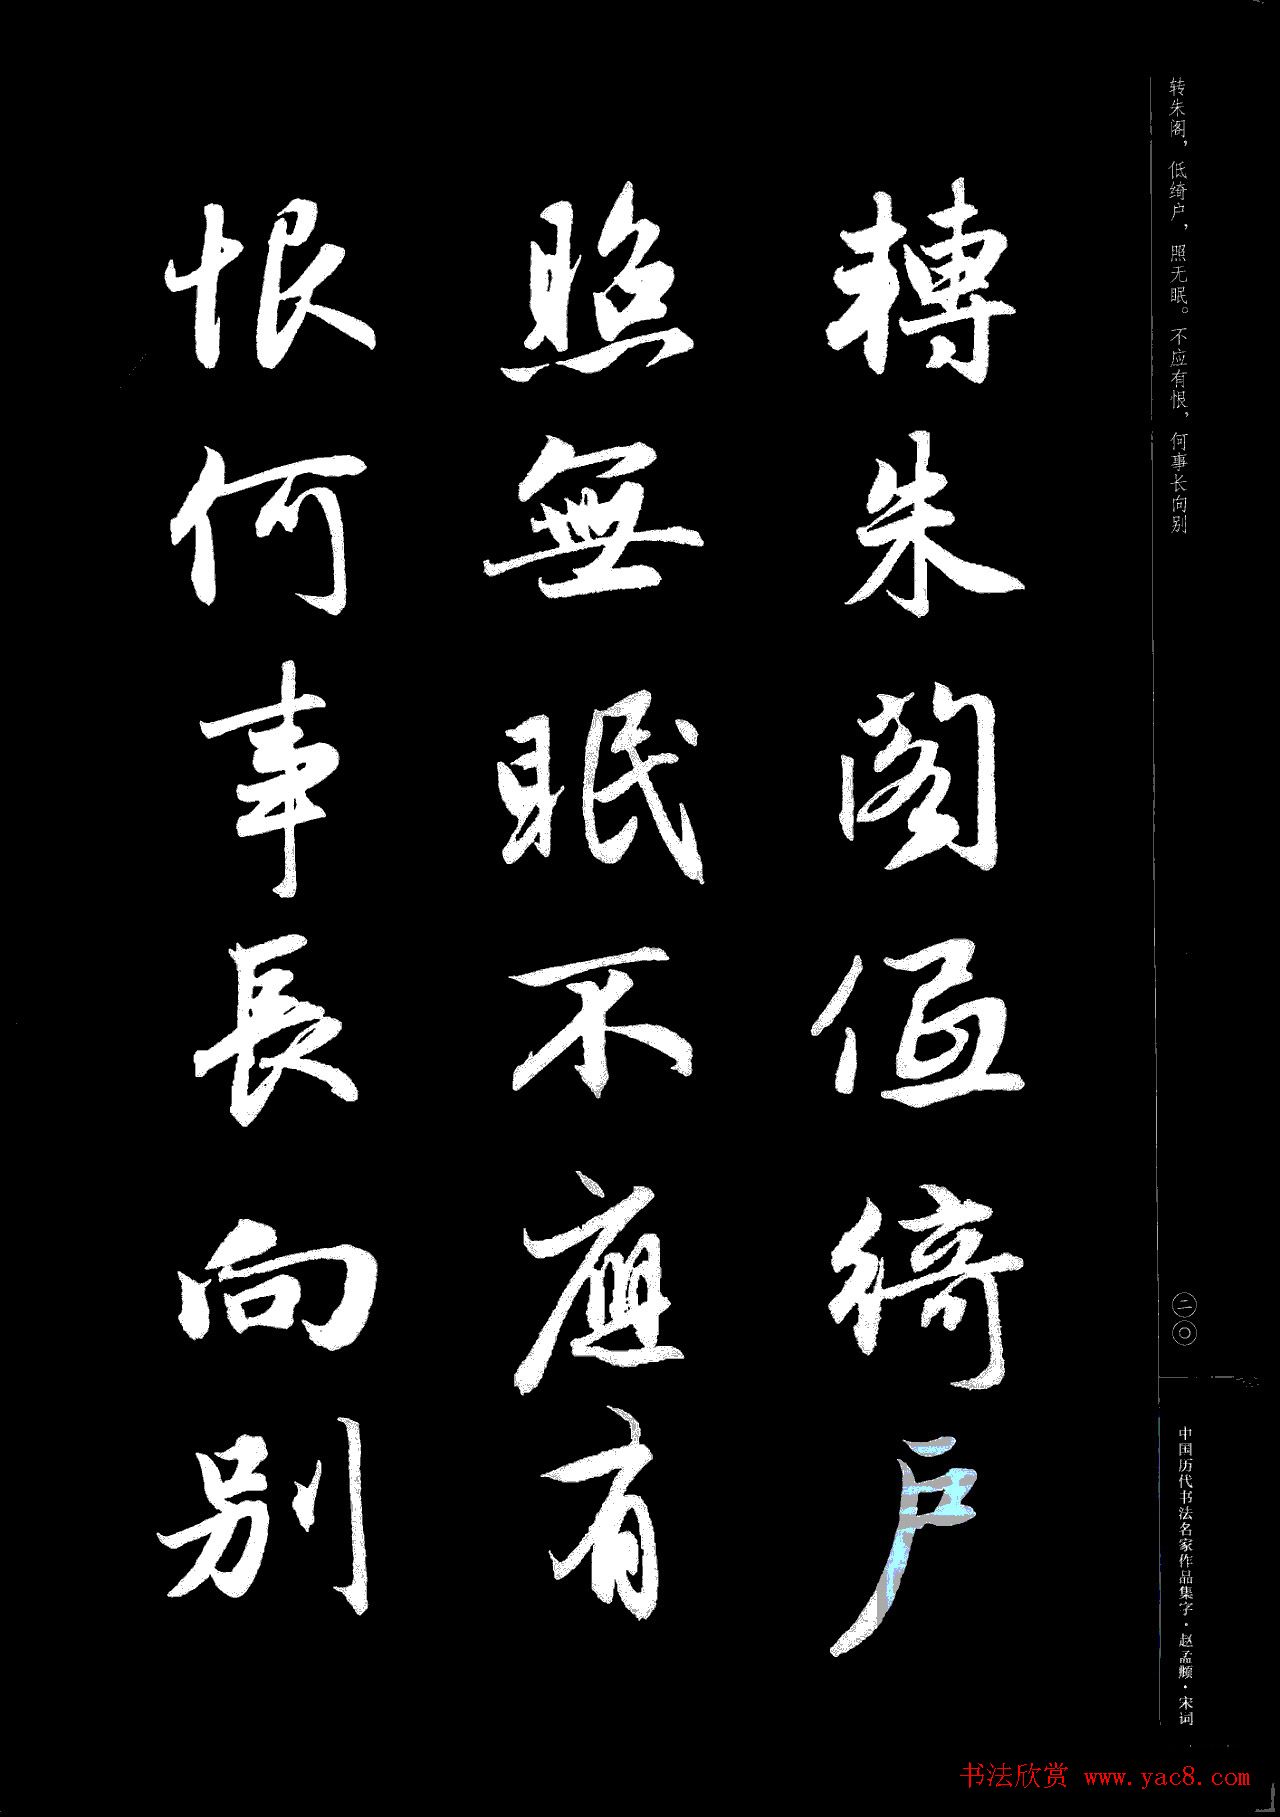 转朱阁，低绮户，照无眠。不应有恨，何事长向别
轉朱閣低綺户
照無眠不應有
恨何事長向别
二〇
中国历代书法名家作品集字·赵孟頫·宋词
书法欣赏 www.yac8.com